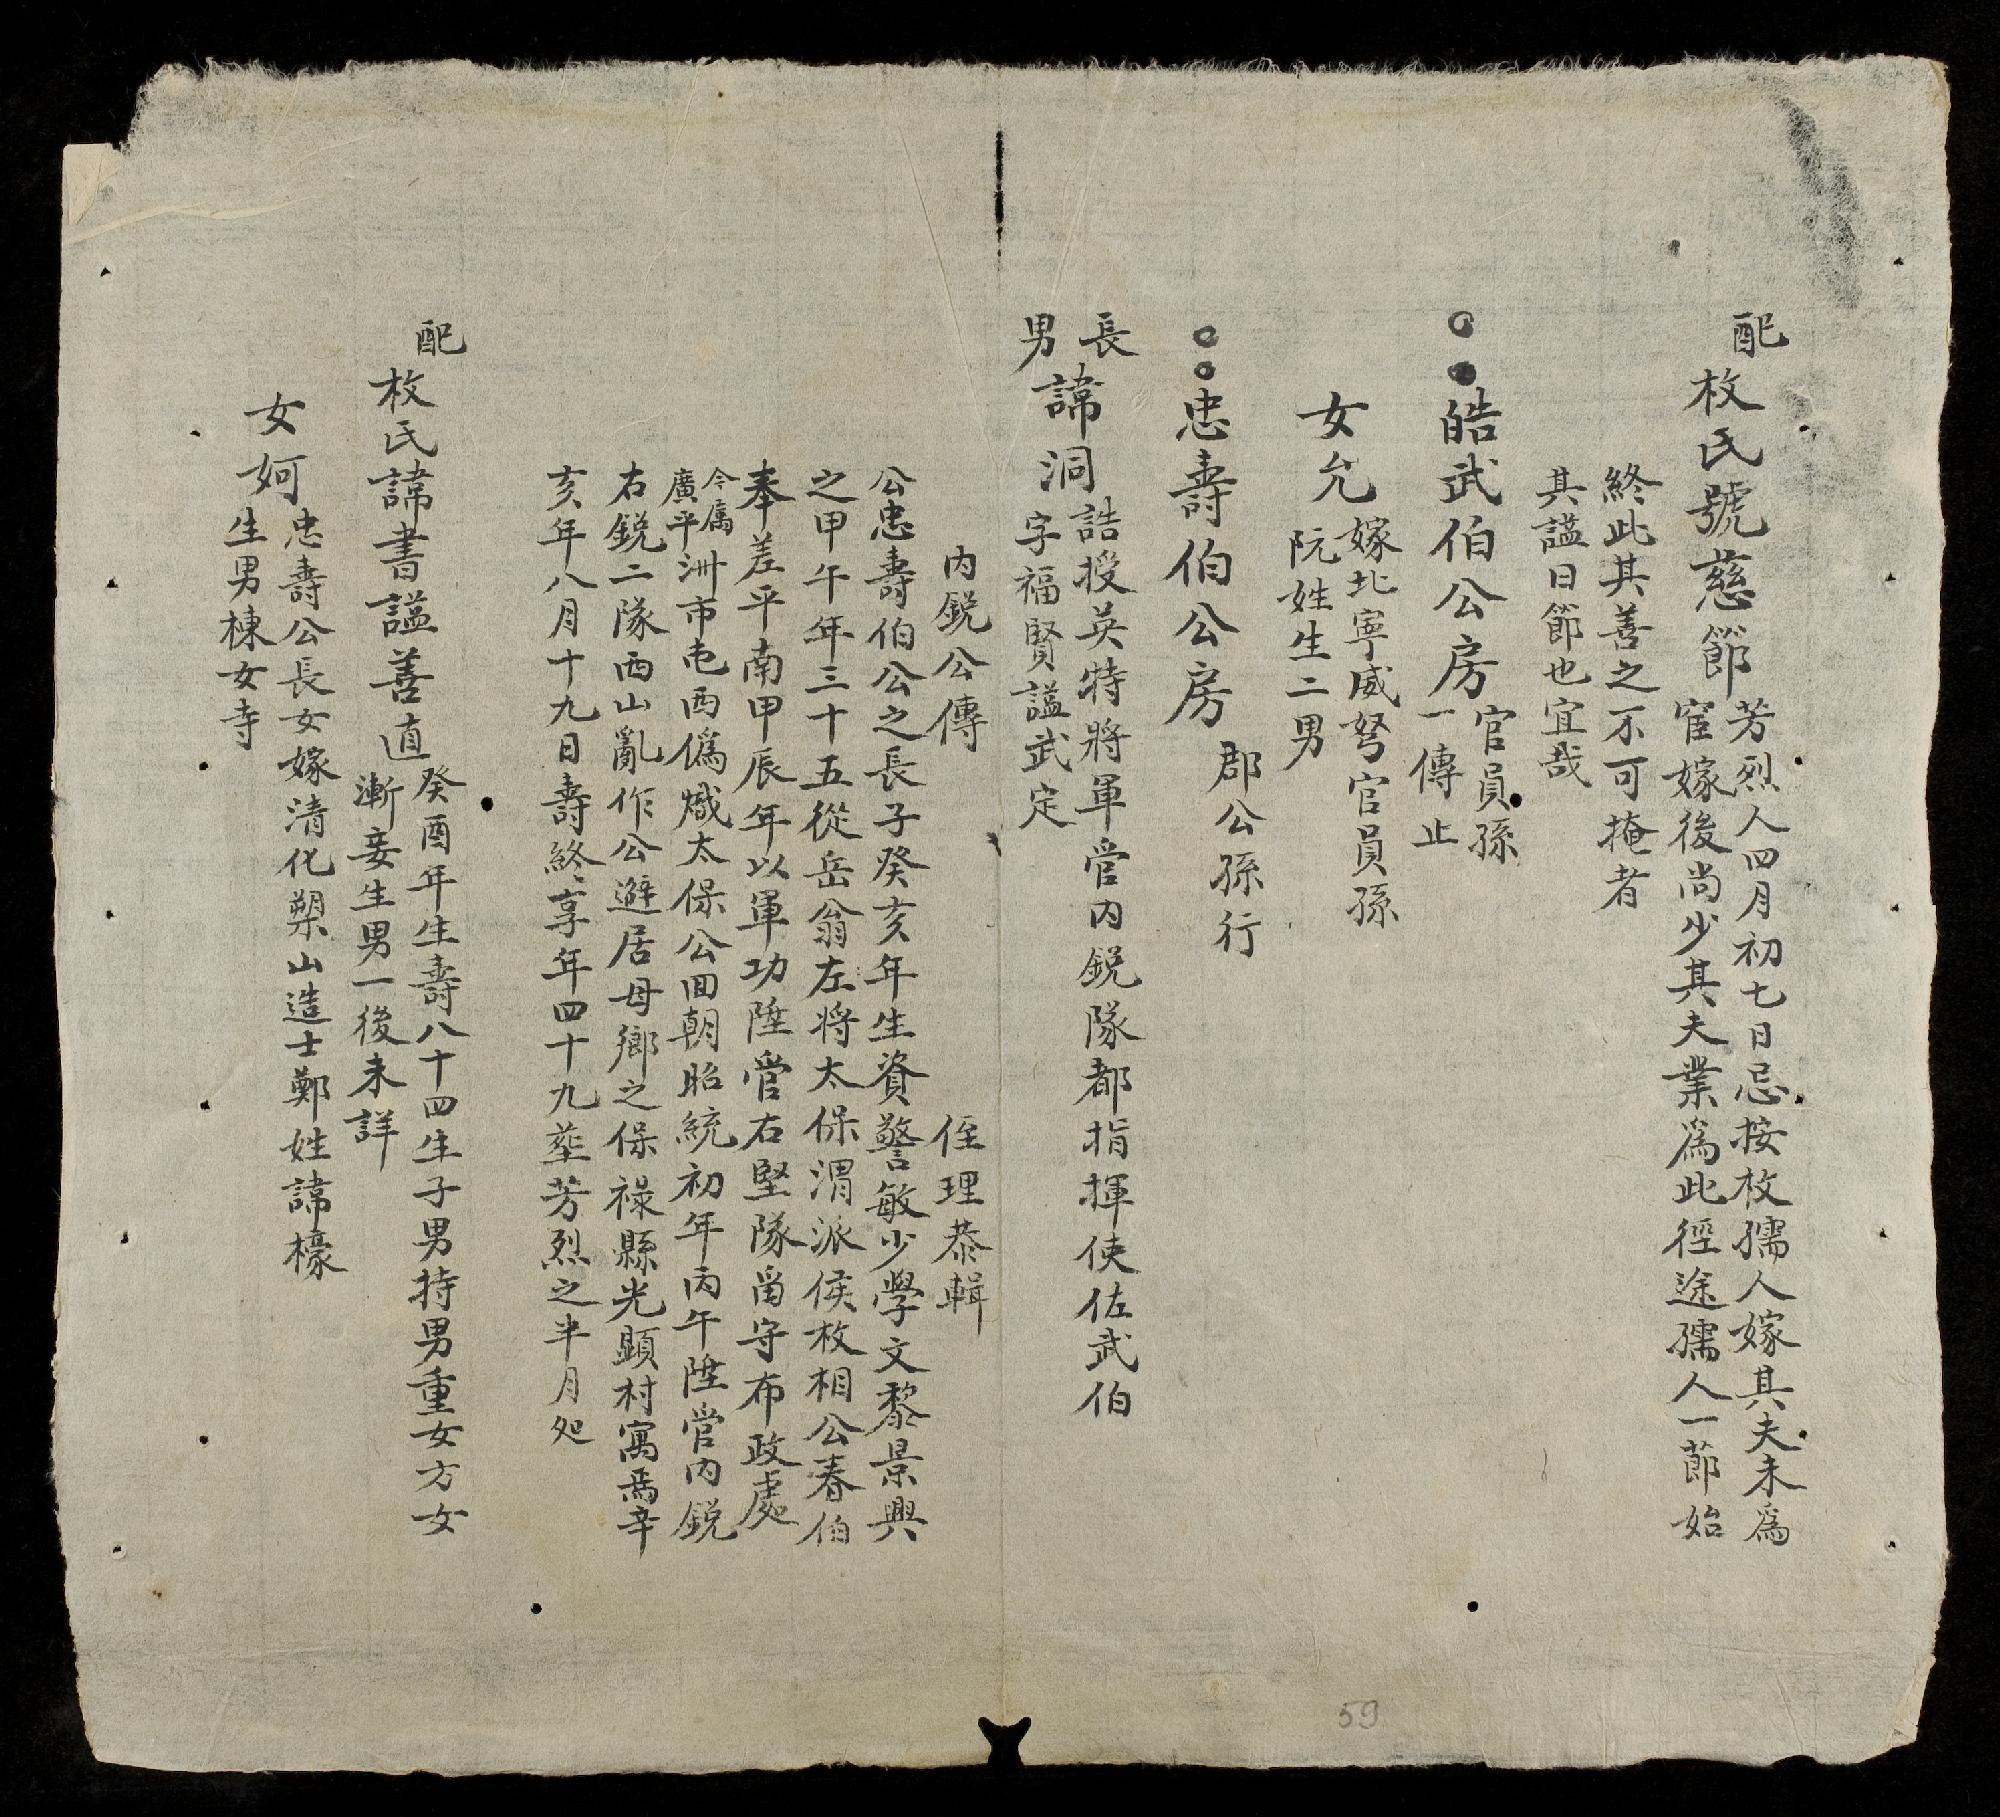 配
枚氏號慈節
芳烈人四月初七日忌按枚孺人嫁其夫未為
宦嫁後尚少其夫業為此徑途孺人一節始
終此其善之不可掩者
其謚曰節也宜哉
皓武伯公房
官員孫
一傳止
女允
嫁北寧威弩官員孫
阮姓生二男
忠壽伯公房
郡公孫行
長男
諱洞
誥授英特將軍管内鋭隊都指揮使佐武伯
字福賢謚武定
内鋭公傳 侄理恭輯
公忠壽伯公之長子癸亥年生資警敏少學文黎景興
之甲午年三十五從岳翁左將太保渭派侯枚相公春伯
奉差平南甲辰年以軍功陞管右堅隊留守布政處
今属
廣平
洲市屯西偽熾太保公回朝昭統初年丙午陞管内鋭
右鋭二隊西山亂作公避居母鄉之保祿縣光顕村寓焉辛
亥年八月十九日壽終享年四十九塟芳烈之半月処
配
枚氏諱書謚善直
癸酉年生壽八十四生子男持男重女方女
漸妾生男一後未詳
女妸
忠壽公長女嫁清化槊山造士鄭姓諱檺
生男棟女寺
59